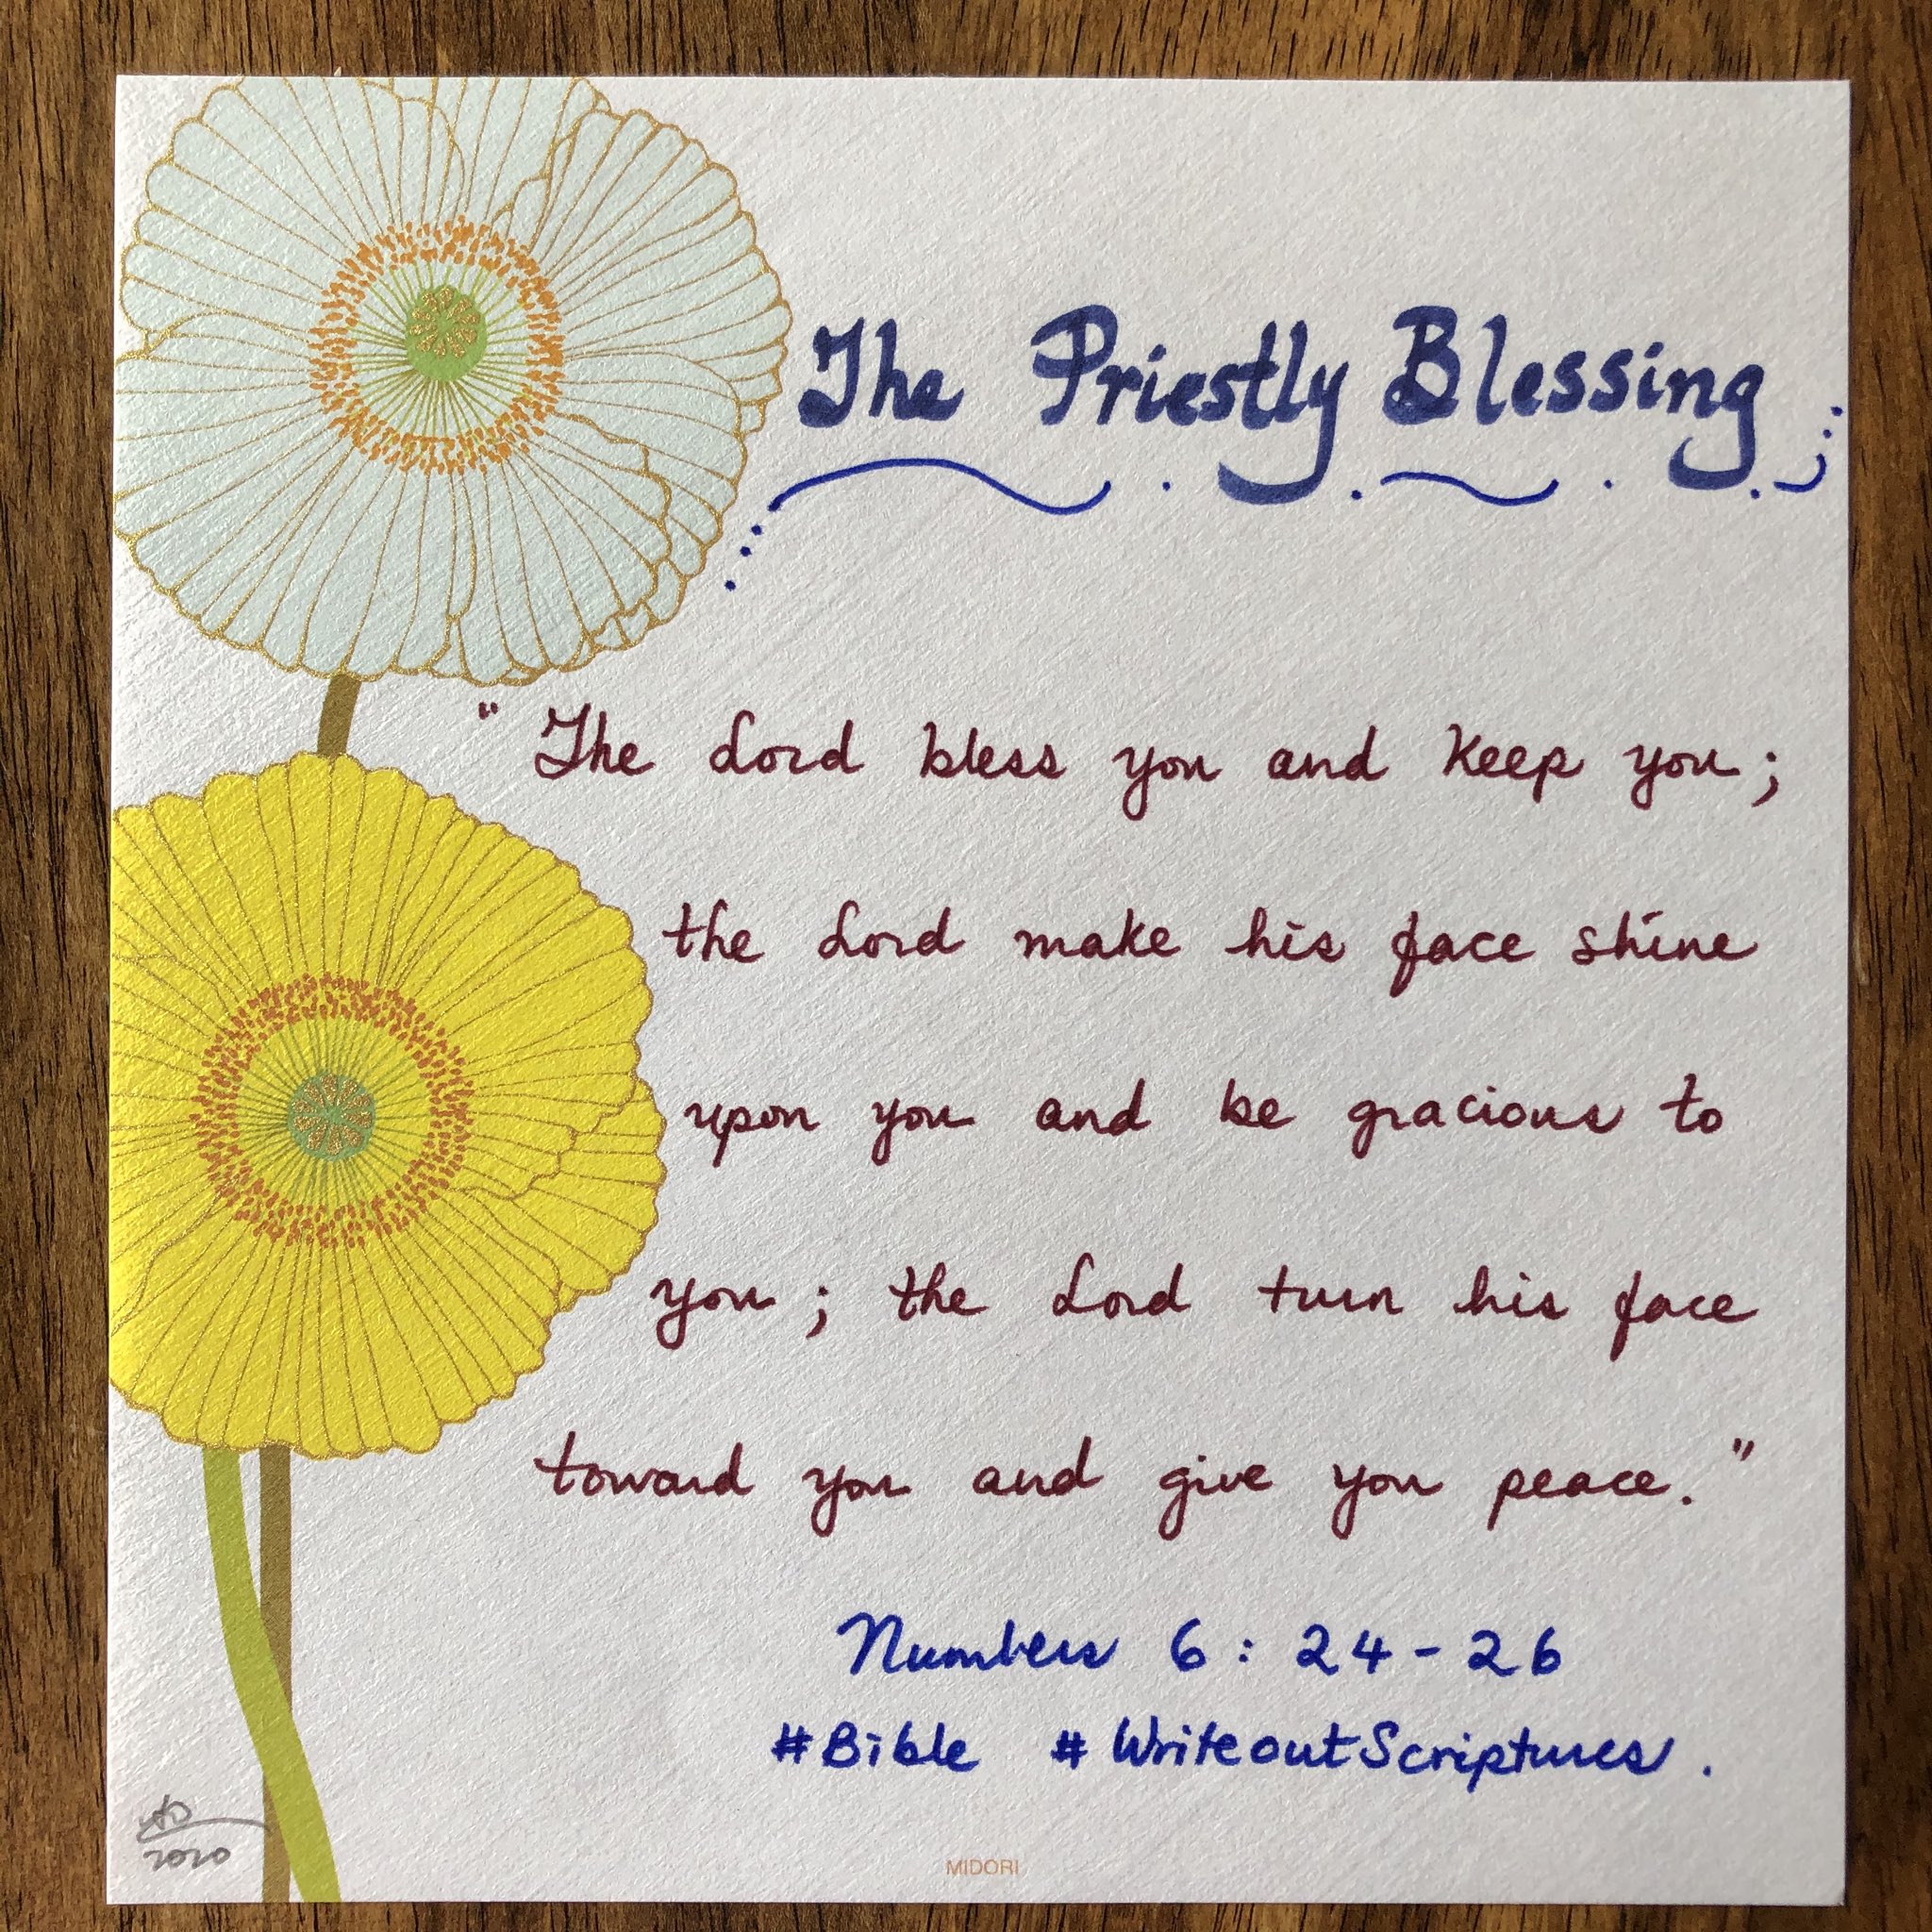 The Priestly Blessing
" The Lord bless you and keep you;
the Lord make his face shine
upon you and be gracious to
you; the Lord turn his face
toward you and give you peace. "
Numbers 6 : 24 - 26
#Bible #WriteoutScriptures.
2020
MIDORI